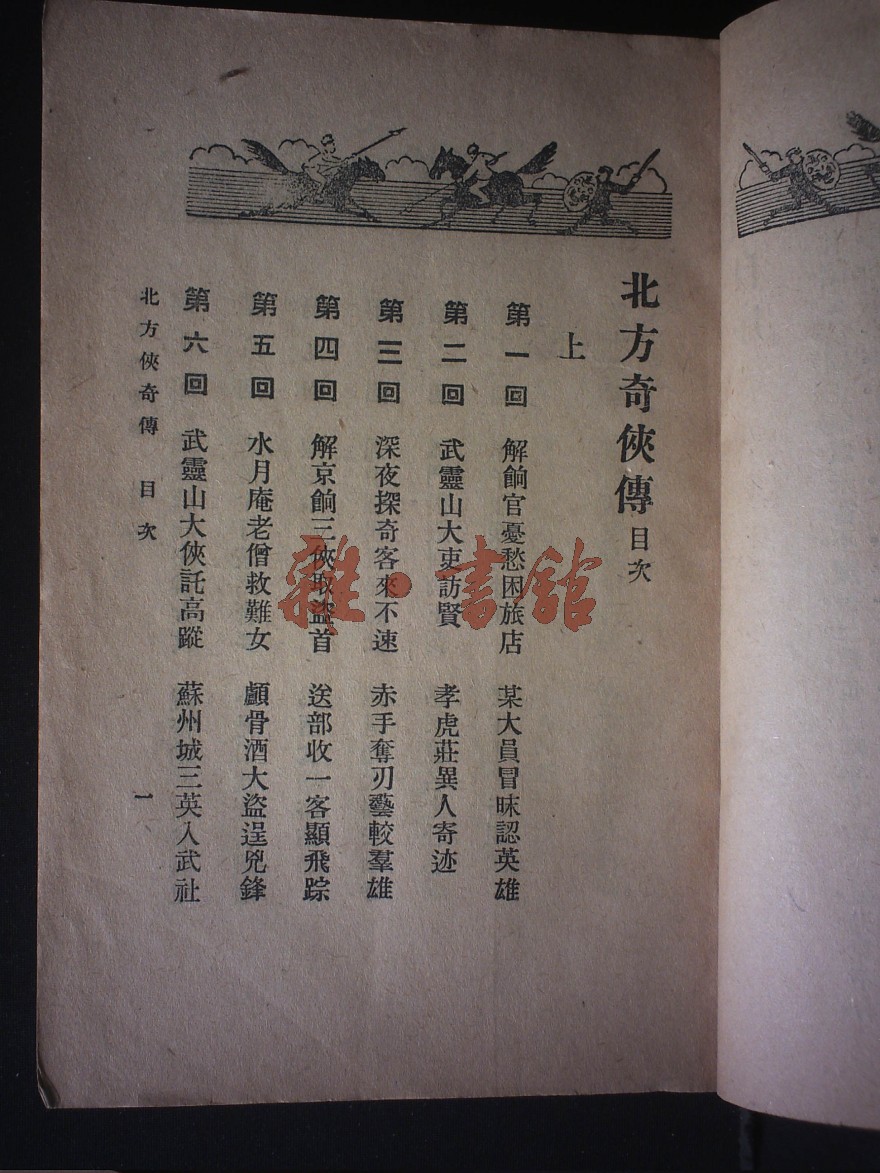 北方奇俠傳 目次
上
第一回 解餉官憂愁困旅店 某大員冒昧認英雄
第二回 武靈山大吏訪賢 孝虎莊異人寄迹
第三回 深夜探奇客來不速 赤手奪刃藝較羣雄
第四回 解京餉三俠取盜首 送部收一客顯飛踪
第五回 水月庵老僧救難女 顱骨酒大盜逞兇鋒
第六回 武靈山大俠託高蹤 蘇州城三英入武社
北方俠奇傳 目次
一
雜·書館